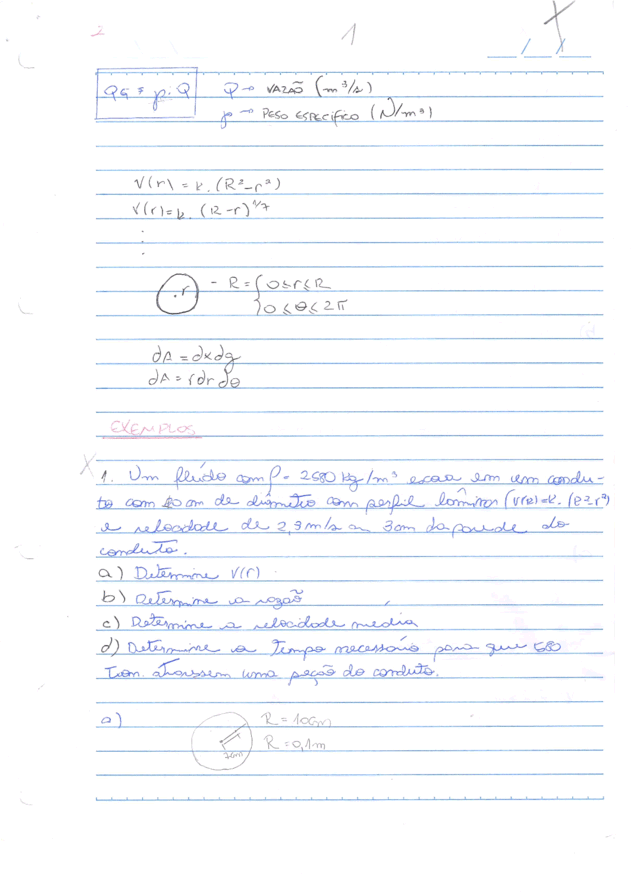 2
1
__/__/__
QG = γ.Q Q → VAZÃO (m³/s)
γ → PESO ESPECÍFICO (N/m³)
V(r) = k. (R² - r²)
V(r) = k. (R - r)^1/7
.
.
.r - R = { 0 ≤ r ≤ R
0 ≤ θ ≤ 2π
dA = dxdy
dA = rdrdθ
EXEMPLOS
1. Um fluído com ρ = 2580 kg/m³ escoa em um condu-
to com 20 cm de diâmetro com perfil lâminar (V(R)=k.(R²-r²)
e velocidade de 2,3 m/s a 3cm da parede do
conduto.
a) Determine V(r)
b) Determine a vazão
c) Determine a velocidade média
d) Determine o tempo necessário para que 580
Ton. atravessem uma seção do conduto.
a) R = 10cm
R = 0,1m
7cm